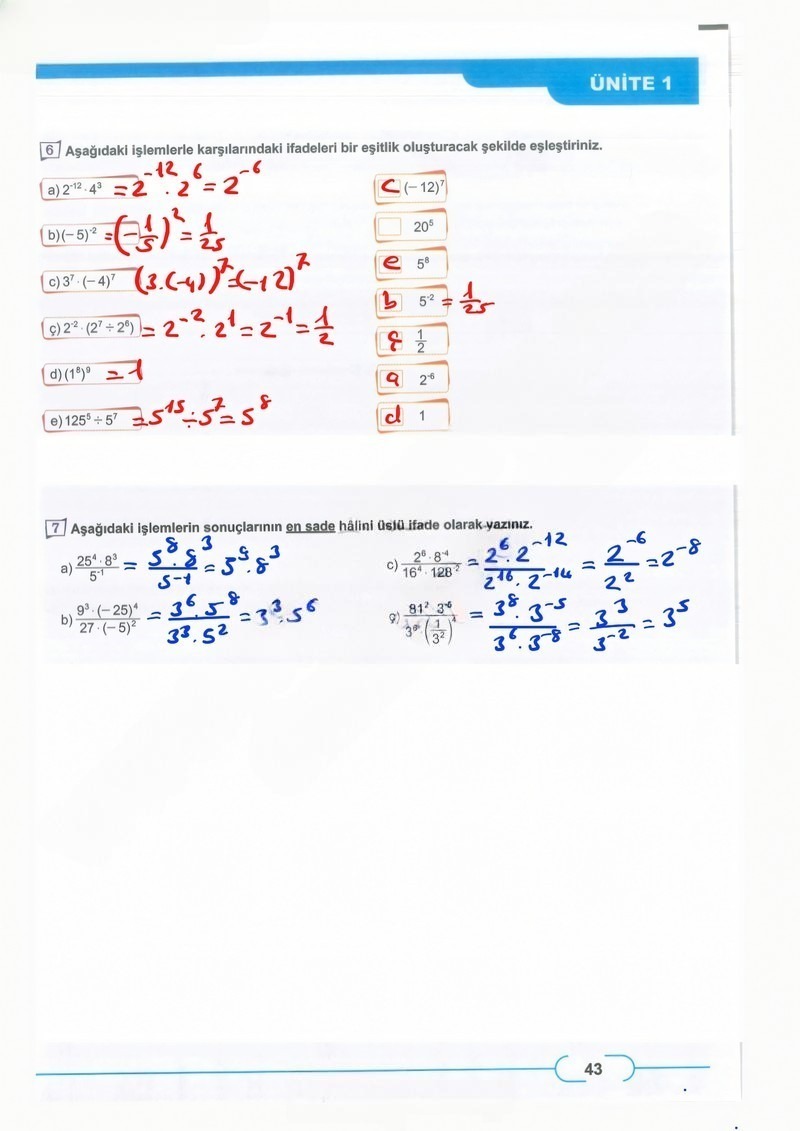 ÜNİTE 1
6 Aşağıdaki işlemlerle karşılarındaki ifadeleri bir eşitlik oluşturacak şekilde eşleştiriniz.
a) 2⁻¹² · 4³ = 2⁻¹² · 2⁶ = 2⁻⁶
b) (– 5)⁻² = (-1/5)² = 1/25
c) 3⁷ · (– 4)⁷ (3.(-4))⁷ = (-12)⁷
ç) 2⁻² · (2⁷ ÷ 2⁶) = 2⁻² · 2¹ = 2⁻¹ = 1/2
d) (1⁸)⁹ = 1
e) 125⁵ ÷ 5⁷ = 5¹⁵ ÷ 5⁷ = 5⁸
c (– 12)⁷
20⁵
e 5⁸
b 5⁻² = 1/25
ç 1/2
a 2⁻⁶
d 1
7 Aşağıdaki işlemlerin sonuçlarının en sade hâlini üslü ifade olarak yazınız.
a) 25⁴ · 8³ / 5⁻¹ = 5⁸ · 8³ / 5⁻¹ = 5⁹ · 8³
b) 9³ · (– 25)⁴ / 27 · (– 5)² = 3⁶ · 5⁸ / 3³ · 5² = 3³ · 5⁶
c) 2⁶ · 8⁻⁴ / 16⁴ · 128⁻² = 2⁶ · 2⁻¹² / 2¹⁶ · 2⁻¹⁴ = 2⁻⁶ / 2² = 2⁻⁸
ç) 81² · 3⁻⁵ / 3⁶ · (1/3²)⁴ = 3⁸ · 3⁻⁵ / 3⁶ · 3⁻⁸ = 3³ / 3⁻² = 3⁵
43